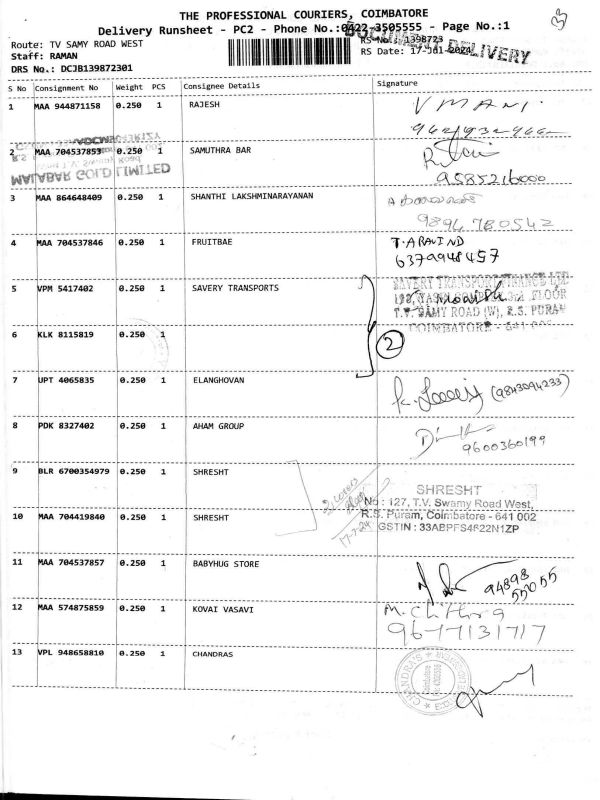 THE PROFESSIONAL COURIERS, COIMBATORE
Delivery Runsheet - PC2 - Phone No.:0422-3505555 - Page No.:1
Route: TV SAMY ROAD WEST
RS No.: 1398723
DELIVERY
Staff: RAMAN
RS Date: 17-Jul-2024
DRS No.: DCJB139872301
S No Consignment No Weight PCS Consignee Details Signature
1 MAA 944871158 0.250 1 RAJESH V MANI
2 MAA 704537853 0.250 1 SAMUTHRA BAR
MALABAR GOLD LIMITED
9585216000
3 MAA 864648409 0.250 1 SHANTHI LAKSHMINARAYANAN
9894 780542
4 MAA 704537846 0.250 1 FRUITBAE T. ARAVIND
6379948457
5 VPM 5417402 0.250 1 SAVERY TRANSPORTS SAVERY TRANSPORT
T.V. SAMY ROAD (W), R.S. PURAM
COIMBATORE - 641 002
6 KLK 8115819 0.250 1 2
7 UPT 4065835 0.250 1 ELANGHOVAN (9843094233)
8 PDK 8327402 0.250 1 AHAM GROUP
9600360199
9 BLR 6700354979 0.250 1 SHRESHT SHRESHT
No : 127, T.V. Swamy Road West,
10 MAA 704419840 0.250 1 SHRESHT R.S. Puram, Coimbatore - 641 002
17-7-24 GSTIN : 33ABPFS4622N1ZP
11 MAA 704537857 0.250 1 BABYHUG STORE 94898
55055
12 MAA 574875859 0.250 1 KOVAI VASAVI M. Chithra
9677131717
13 VPL 948658810 0.250 1 CHANDRAS CHANDRA'S